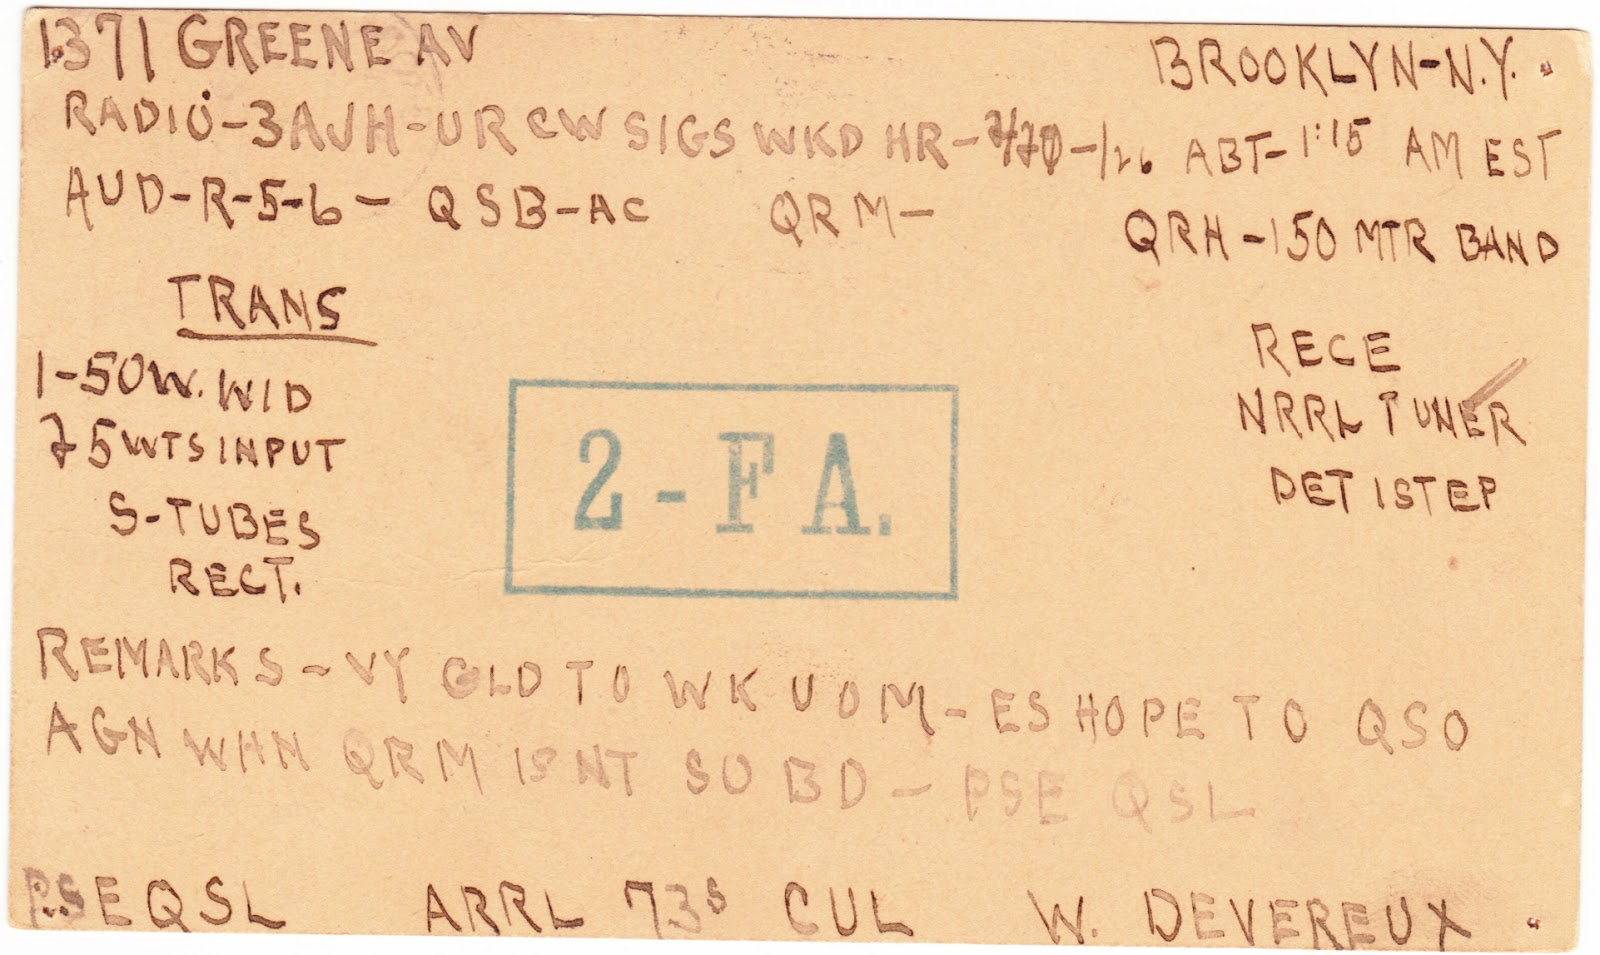 1371 GREENE AV BROOKLYN-N.Y.
RADIO-3AJH-UR CW SIGS WKD HR- -1/26 ABT-1:15 AM EST
AUD-R-5-6- QSB-AC QRM- QRH-150 MTR BAND
TRANS
1-50W. WID
75WTS INPUT
S-TUBES
RECT.
2-FA.
RECE
NRRL TUNER
DET 1STEP
REMARKS-VY GLD TO WK U OM-ES HOPE TO QSO
AGN WHN QRM ISNT SO BD-PSE QSL
PSE QSL ARRL 73s CUL W. DEVEREUX